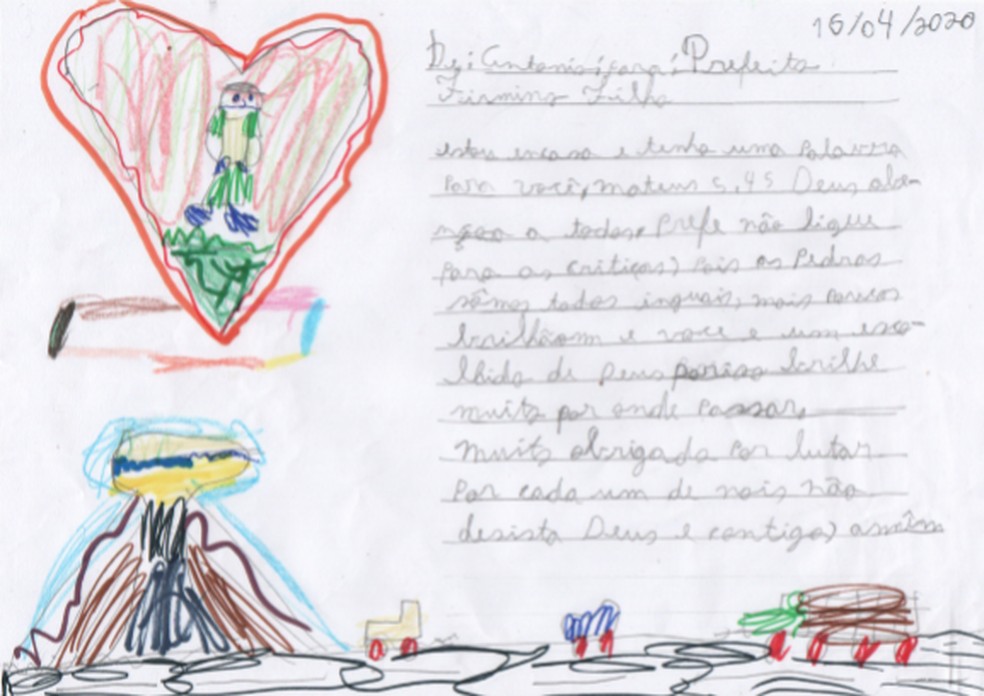 16/04/2020
De: Antonio, para: Prefeito
Firmino Filho
estou encasa e tenho uma Palavra
Para você, mateus 5,45 Deus abe-
nçoa a todos, Prefe não ligue
para as criticas, Pois as Pedras
sâmos todos inguais, mais poucos
brilhãom e voce e um esco-
lhido de Deus porisso brilhe
muito por onde Passar,
muito obrigado Por lutar
Por cada um de nois não
desista Deus e contigo,